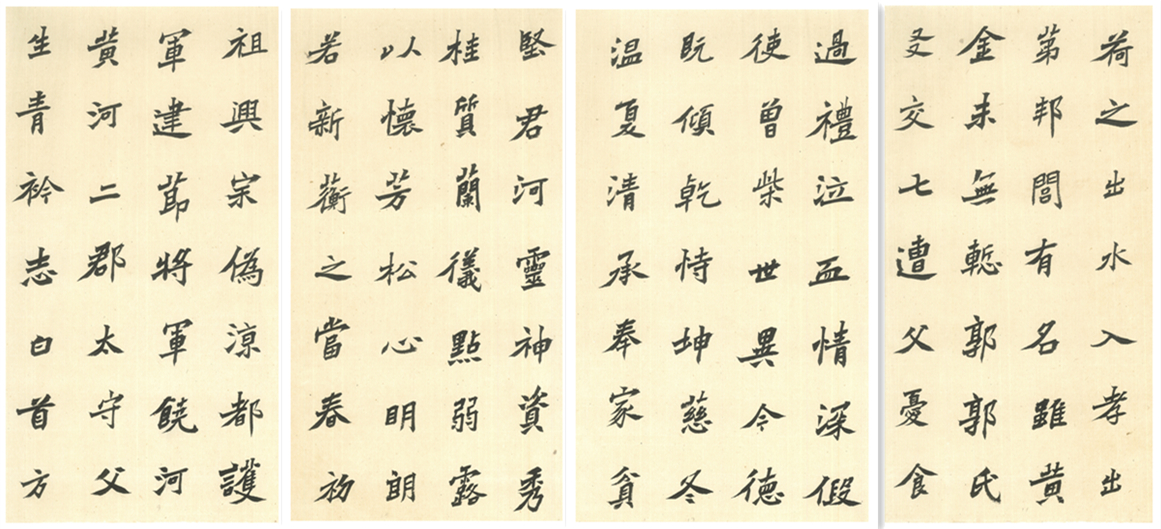 荷之出水入孝出
第邦閭有名雖黃
金未無慙郭郭氏
友交七遭父憂食
過禮泣血情深假
使曾柴世異今德
既傾乾恃坤慈冬
温夏清承奉家貧
堅君河靈神資秀
桂質蘭儀點弱露
以懷芳松心明朗
若新蘅之當春初
祖興宗偽涼都護
軍建節將軍饒河
黃河二郡太守父
生青衿志白首方